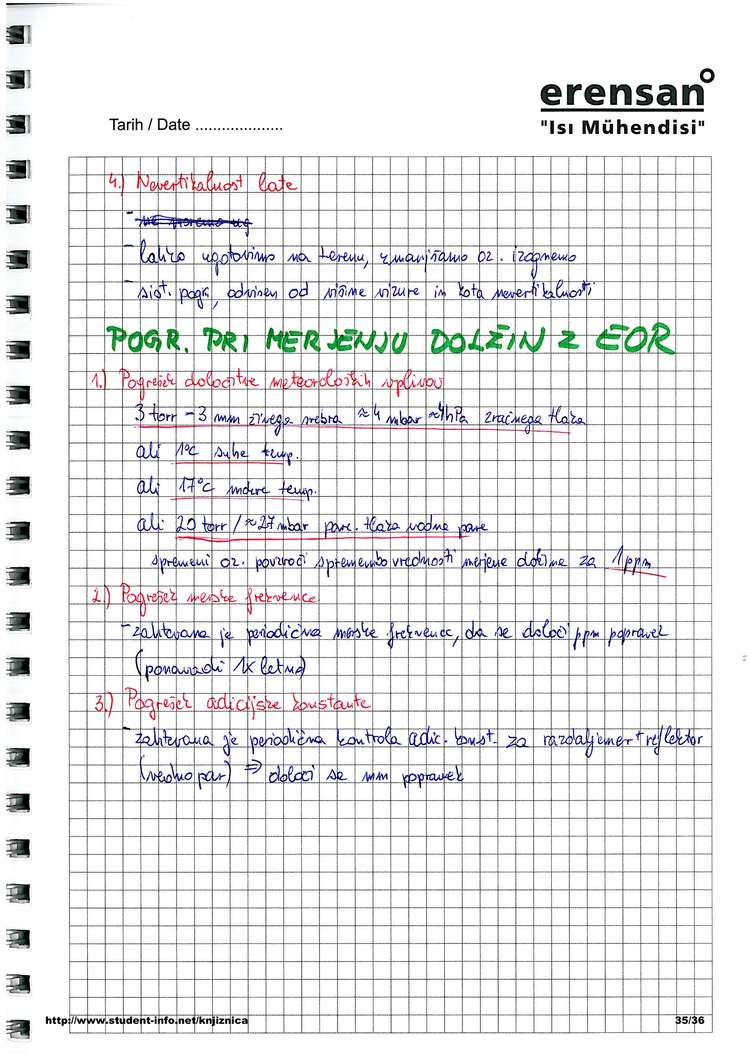 erensan
Tarih / Date ....................
"Isı Mühendisi"
4.) Nevertikalnost late
- ne moremo ug
- lahko ugotovimo na terenu, zmanjšamo oz. izognemo
- sist. pogr, odvisen od višine vizure in kota nevertikalnosti
POGR. PRI MERJENJU DOLŽIN Z EOR
1.) Pogrešek določitve meteoroloških vplivov
3 torr - 3 mm živega srebra ≈ 4 mbar ≈ 4hPa zračnega tlaka
ali 1°C suhe temp.
ali 17°C mokre temp.
ali 20 torr / ≈ 27 mbar parc. tlaka vodne pare
spremeni oz. povzroči spremembo vrednosti merjene dolžine za 1 ppm
2.) Pogrešek merske frekvence
- zahtevana je periodična merske frekvence, da se določi ppm popravek
(ponavadi 1x letno)
3.) Pogrešek adicijske konstante
- zahtevana je periodična kontrola adic. konst. za razdaljemer + reflektor
(vedno par) ⇒ določi se mm popravek
http://www.student-info.net/knjiznica
35/36